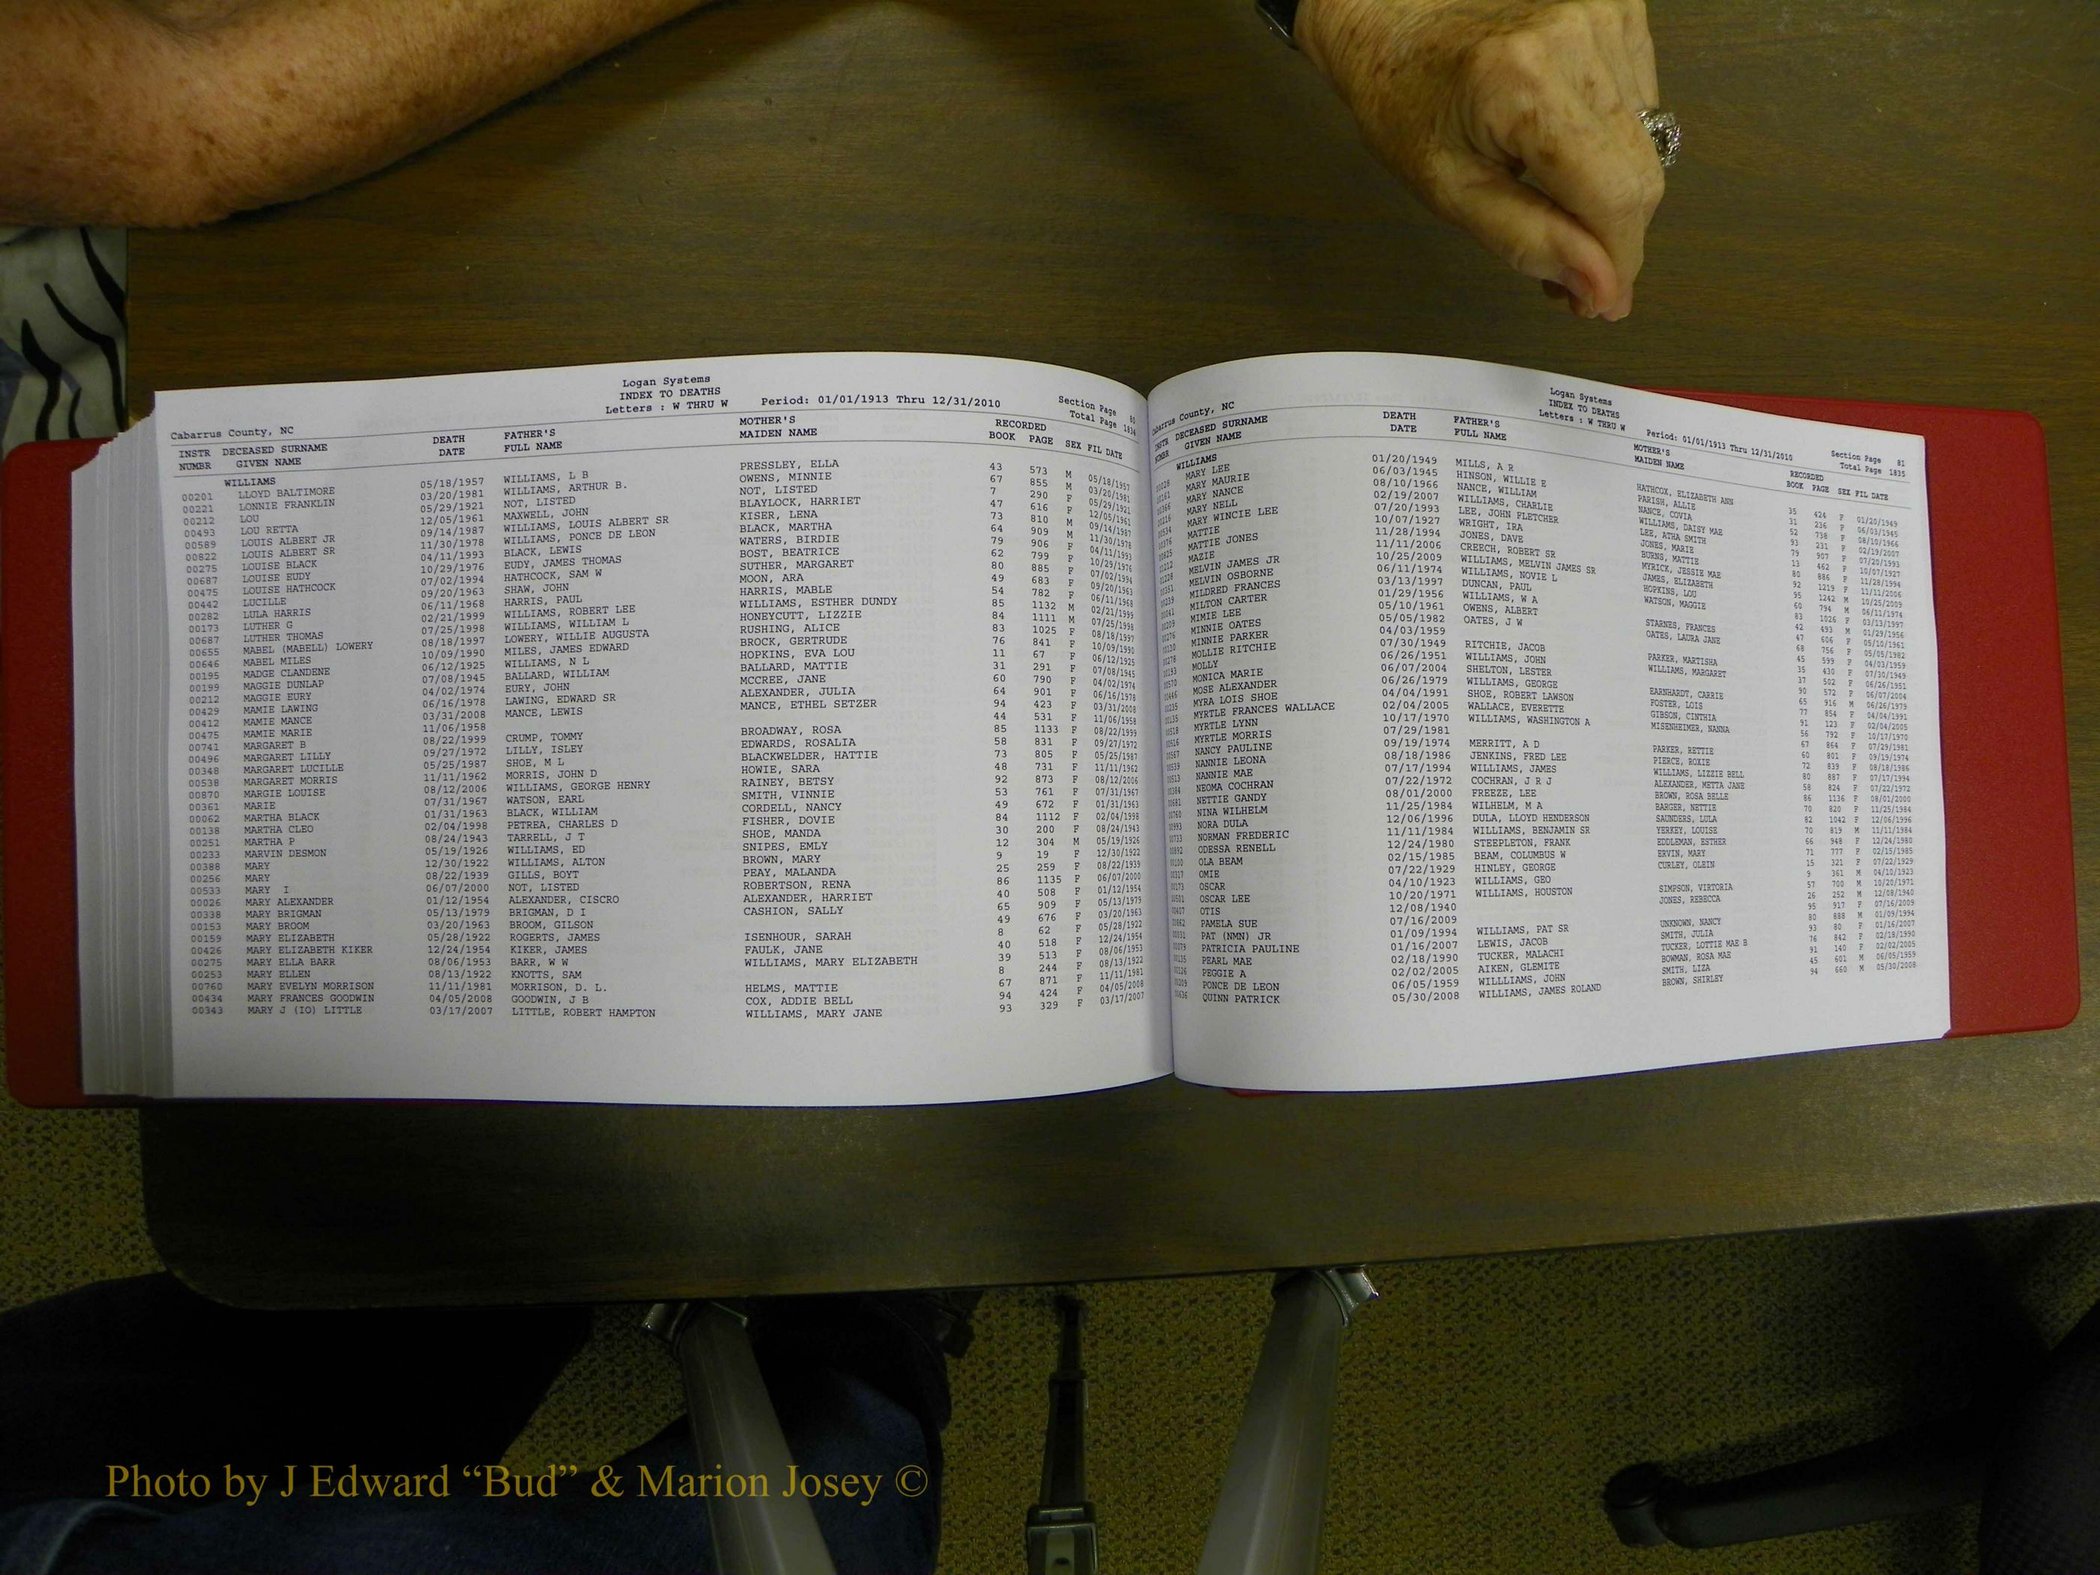 Logan Systems
INDEX TO DEATHS
Letters : W THRU W Period: 01/01/1913 Thru 12/31/2010 Section Page 80
Cabarrus County, NC Total Page 1834
INSTR DECEASED SURNAME DEATH FATHER'S MOTHER'S RECORDED
NUMBR GIVEN NAME DATE FULL NAME MAIDEN NAME BOOK PAGE SEX FIL DATE
WILLIAMS
00201 LLOYD BALTIMORE 05/18/1957 WILLIAMS, L B PRESSLEY, ELLA 43 573 M 05/18/1957
00221 LONNIE FRANKLIN 03/20/1981 WILLIAMS, ARTHUR B. OWENS, MINNIE 67 855 M 03/20/1981
00212 LOU 05/29/1921 NOT, LISTED NOT, LISTED 7 290 F 05/29/1921
00493 LOU RETTA 12/05/1961 MAXWELL, JOHN BLAYLOCK, HARRIET 47 616 F 12/05/1961
00589 LOUIS ALBERT JR 09/14/1987 WILLIAMS, LOUIS ALBERT SR KISER, LENA 73 810 M 09/14/1987
00822 LOUIS ALBERT SR 11/30/1978 WILLIAMS, PONCE DE LEON BLACK, MARTHA 64 909 M 11/30/1978
00275 LOUISE BLACK 04/11/1993 BLACK, LEWIS WATERS, BIRDIE 79 906 F 04/11/1993
00687 LOUISE EUDY 10/29/1976 EUDY, JAMES THOMAS BOST, BEATRICE 62 799 F 10/29/1976
00475 LOUISE HATHCOCK 07/02/1994 HATHCOCK, SAM W SUTHER, MARGARET 80 885 F 07/02/1994
00442 LUCILLE 09/20/1963 SHAW, JOHN MOON, ARA 49 683 F 09/20/1963
00282 LULA HARRIS 06/11/1968 HARRIS, PAUL HARRIS, MABLE 54 782 F 06/11/1968
00173 LUTHER G 02/21/1999 WILLIAMS, ROBERT LEE WILLIAMS, ESTHER DUNDY 85 1132 M 02/21/1999
00687 LUTHER THOMAS 07/25/1998 WILLIAMS, WILLIAM L HONEYCUTT, LIZZIE 84 1111 M 07/25/1998
00655 MABEL (MABELL) LOWERY 08/18/1997 LOWERY, WILLIE AUGUSTA RUSHING, ALICE 83 1025 F 08/18/1997
00646 MABEL MILES 10/09/1990 MILES, JAMES EDWARD BROCK, GERTRUDE 76 841 F 10/09/1990
00195 MADGE CLANDENE 06/12/1925 WILLIAMS, N L HOPKINS, EVA LOU 11 67 F 06/12/1925
00199 MAGGIE DUNLAP 07/08/1945 BALLARD, WILLIAM BALLARD, MATTIE 31 291 F 07/08/1945
00212 MAGGIE EURY 04/02/1974 EURY, JOHN MCCREE, JANE 60 790 F 04/02/1974
00429 MAMIE LAWING 06/16/1978 LAWING, EDWARD SR ALEXANDER, JULIA 64 901 F 06/16/1978
00412 MAMIE MANCE 03/31/2008 MANCE, LEWIS MANCE, ETHEL SETZER 94 423 F 03/31/2008
00475 MAMIE MARIE 11/06/1958 44 531 F 11/06/1958
00741 MARGARET B 08/22/1999 CRUMP, TOMMY BROADWAY, ROSA 85 1133 F 08/22/1999
00496 MARGARET LILLY 09/27/1972 LILLY, ISLEY EDWARDS, ROSALIA 58 831 F 09/27/1972
00348 MARGARET LUCILLE 05/25/1987 SHOE, M L BLACKWELDER, HATTIE 73 805 F 05/25/1987
00538 MARGARET MORRIS 11/11/1962 MORRIS, JOHN D HOWIE, SARA 48 731 F 11/11/1962
00870 MARGIE LOUISE 08/12/2006 WILLIAMS, GEORGE HENRY RAINEY, BETSY 92 873 F 08/12/2006
00361 MARIE 07/31/1967 WATSON, EARL SMITH, VINNIE 53 761 F 07/31/1967
00062 MARTHA BLACK 01/31/1963 BLACK, WILLIAM CORDELL, NANCY 49 672 F 01/31/1963
00138 MARTHA CLEO 02/04/1998 PETREA, CHARLES D FISHER, DOVIE 84 1112 F 02/04/1998
00251 MARTHA P 08/24/1943 TARRELL, J T SHOE, MANDA 30 200 F 08/24/1943
00233 MARVIN DESMON 05/19/1926 WILLIAMS, ED SNIPES, EMLY 12 304 M 05/19/1926
00388 MARY 12/30/1922 WILLIAMS, ALTON BROWN, MARY 9 19 F 12/30/1922
00256 MARY 08/22/1939 GILLS, BOYT PEAY, MALANDA 25 259 F 08/22/1939
00533 MARY I 06/07/2000 NOT, LISTED ROBERTSON, RENA 86 1135 F 06/07/2000
00026 MARY ALEXANDER 01/12/1954 ALEXANDER, CISCRO ALEXANDER, HARRIET 40 508 F 01/12/1954
00338 MARY BRIGMAN 05/13/1979 BRIGMAN, D I CASHION, SALLY 65 909 F 05/13/1979
00153 MARY BROOM 03/20/1963 BROOM, GILSON 49 676 F 03/20/1963
00159 MARY ELIZABETH 05/28/1922 ROGERTS, JAMES ISENHOUR, SARAH 8 62 F 05/28/1922
00426 MARY ELIZABETH KIKER 12/24/1954 KIKER, JAMES FAULK, JANE 40 518 F 12/24/1954
00275 MARY ELLA BARR 08/06/1953 BARR, W W WILLIAMS, MARY ELIZABETH 39 513 F 08/06/1953
00253 MARY ELLEN 08/13/1922 KNOTTS, SAM 8 244 F 08/13/1922
00760 MARY EVELYN MORRISON 11/11/1981 MORRISON, D. L. HELMS, MATTIE 67 871 F 11/11/1981
00434 MARY FRANCES GOODWIN 04/05/2008 GOODWIN, J B COX, ADDIE BELL 94 424 F 04/05/2008
00343 MARY J (IO) LITTLE 03/17/2007 LITTLE, ROBERT HAMPTON WILLIAMS, MARY JANE 93 329 F 03/17/2007
Logan Systems
INDEX TO DEATHS
Letters : W THRU W Period: 01/01/1913 Thru 12/31/2010 Section Page 81
Cabarrus County, NC Total Page 1835
INSTR DECEASED SURNAME DEATH FATHER'S MOTHER'S RECORDED
NUMBR GIVEN NAME DATE FULL NAME MAIDEN NAME BOOK PAGE SEX FIL DATE
WILLIAMS
MARY LEE 01/20/1949 MILLS, A R HATHCOX, ELIZABETH ANN 35 424 F 01/20/1949
MARY MAURIE 06/03/1945 HINSON, WILLIE E PARISH, ALLIE 31 236 F 06/03/1945
MARY NANCE 08/10/1966 NANCE, WILLIAM NANCE, COVIA 52 738 F 08/10/1966
MARY NELL 02/19/2007 WILLIAMS, CHARLIE WILLIAMS, DAISY MAE 93 231 F 02/19/2007
MARY WINCIE LEE 07/20/1993 LEE, JOHN FLETCHER LEE, ATHA SMITH 79 907 F 07/20/1993
MATTIE 10/07/1927 WRIGHT, IRA JONES, MARIE 13 462 F 10/07/1927
MATTIE JONES 11/28/1994 JONES, DAVE BURNS, MATTIE 80 886 F 11/28/1994
MAZIE 11/11/2006 CREECH, ROBERT SR MYRICK, JESSIE MAE 92 1219 F 11/11/2006
MELVIN JAMES JR 10/25/2009 WILLIAMS, MELVIN JAMES SR JAMES, ELIZABETH 95 1242 M 10/25/2009
MELVIN OSBORNE 06/11/1974 WILLIAMS, NOVIE L HOPKINS, LOU 60 794 M 06/11/1974
MILDRED FRANCES 03/13/1997 DUNCAN, PAUL WATSON, MAGGIE 83 1026 F 03/13/1997
MILTON CARTER 01/29/1956 WILLIAMS, W A 42 493 M 01/29/1956
MIMIE LEE 05/10/1961 OWENS, ALBERT STARNES, FRANCES 47 606 F 05/10/1961
MINNIE OATES 05/05/1982 OATES, J W OATES, LAURA JANE 68 756 F 05/05/1982
MINNIE PARKER 04/03/1959 45 599 F 04/03/1959
MOLLIE RITCHIE 07/30/1949 RITCHIE, JACOB PARKER, MARTISHA 35 430 F 07/30/1949
MOLLY 06/26/1951 WILLIAMS, JOHN WILLIAMS, MARGARET 37 502 F 06/26/1951
MONICA MARIE 06/07/2004 SHELTON, LESTER 90 572 F 06/07/2004
MOSE ALEXANDER 06/26/1979 WILLIAMS, GEORGE EARNHARDT, CARRIE 65 916 M 06/26/1979
MYRA LOIS SHOE 04/04/1991 SHOE, ROBERT LAWSON FOSTER, LOIS 77 854 F 04/04/1991
MYRTLE FRANCES WALLACE 02/04/2005 WALLACE, EVERETTE GIBSON, CINTHIA 91 123 F 02/04/2005
MYRTLE LYNN 10/17/1970 WILLIAMS, WASHINGTON A MISENHEIMER, NANNA 56 792 F 10/17/1970
MYRTLE MORRIS 07/29/1981 67 864 F 07/29/1981
NANCY PAULINE 09/19/1974 MERRITT, A D PARKER, RETTIE 60 801 F 09/19/1974
NANNIE LEONA 08/18/1986 JENKINS, FRED LEE PIERCE, ROXIE 72 839 F 08/18/1986
NANNIE MAE 07/17/1994 WILLIAMS, JAMES WILLIAMS, LIZZIE BELL 80 887 F 07/17/1994
NEOMA COCHRAN 07/22/1972 COCHRAN, J R J ALEXANDER, METTA JANE 58 824 F 07/22/1972
NETTIE GANDY 08/01/2000 FREEZE, LEE BROWN, ROSA BELLE 86 1136 F 08/01/2000
NINA WILHELM 11/25/1984 WILHELM, M A BARGER, NETTIE 70 820 F 11/25/1984
NORA DULA 12/06/1996 DULA, LLOYD HENDERSON SAUNDERS, LULA 82 1042 F 12/06/1996
NORMAN FREDERIC 11/11/1984 WILLIAMS, BENJAMIN SR YERKEY, LOUISE 70 819 M 11/11/1984
ODESSA RENELL 12/24/1980 STEEPLETON, FRANK EDDLEMAN, ESTHER 66 948 F 12/24/1980
OLA BEAM 02/15/1985 BEAM, COLUMBUS W ERVIN, MARY 71 777 F 02/15/1985
OMIE 07/22/1929 HINLEY, GEORGE CURLEY, OLEIN 15 321 F 07/22/1929
OSCAR 04/10/1923 WILLIAMS, GEO 9 361 M 04/10/1923
OSCAR LEE 10/20/1971 WILLIAMS, HOUSTON SIMPSON, VIRTORIA 57 700 M 10/20/1971
OTIS 12/08/1940 JONES, REBECCA 26 252 M 12/08/1940
PAMELA SUE 07/16/2009 95 917 F 07/16/2009
PAT (NMN) JR 01/09/1994 WILLIAMS, PAT SR UNKNOWN, NANCY 80 888 M 01/09/1994
PATRICIA PAULINE 01/16/2007 LEWIS, JACOB SMITH, JULIA 93 80 F 01/16/2007
PEARL MAE 02/18/1990 TUCKER, MALACHI TUCKER, LOTTIE MAE B 76 842 F 02/18/1990
PEGGIE A 02/02/2005 AIKEN, GLEMITE BOWMAN, ROSA MAE 91 140 F 02/02/2005
PONCE DE LEON 06/05/1959 WILLLIAMS, JOHN SMITH, LIZA 45 601 M 06/05/1959
QUINN PATRICK 05/30/2008 WILLIAMS, JAMES ROLAND BROWN, SHIRLEY 94 660 M 05/30/2008
Photo by J Edward “Bud” & Marion Josey ©